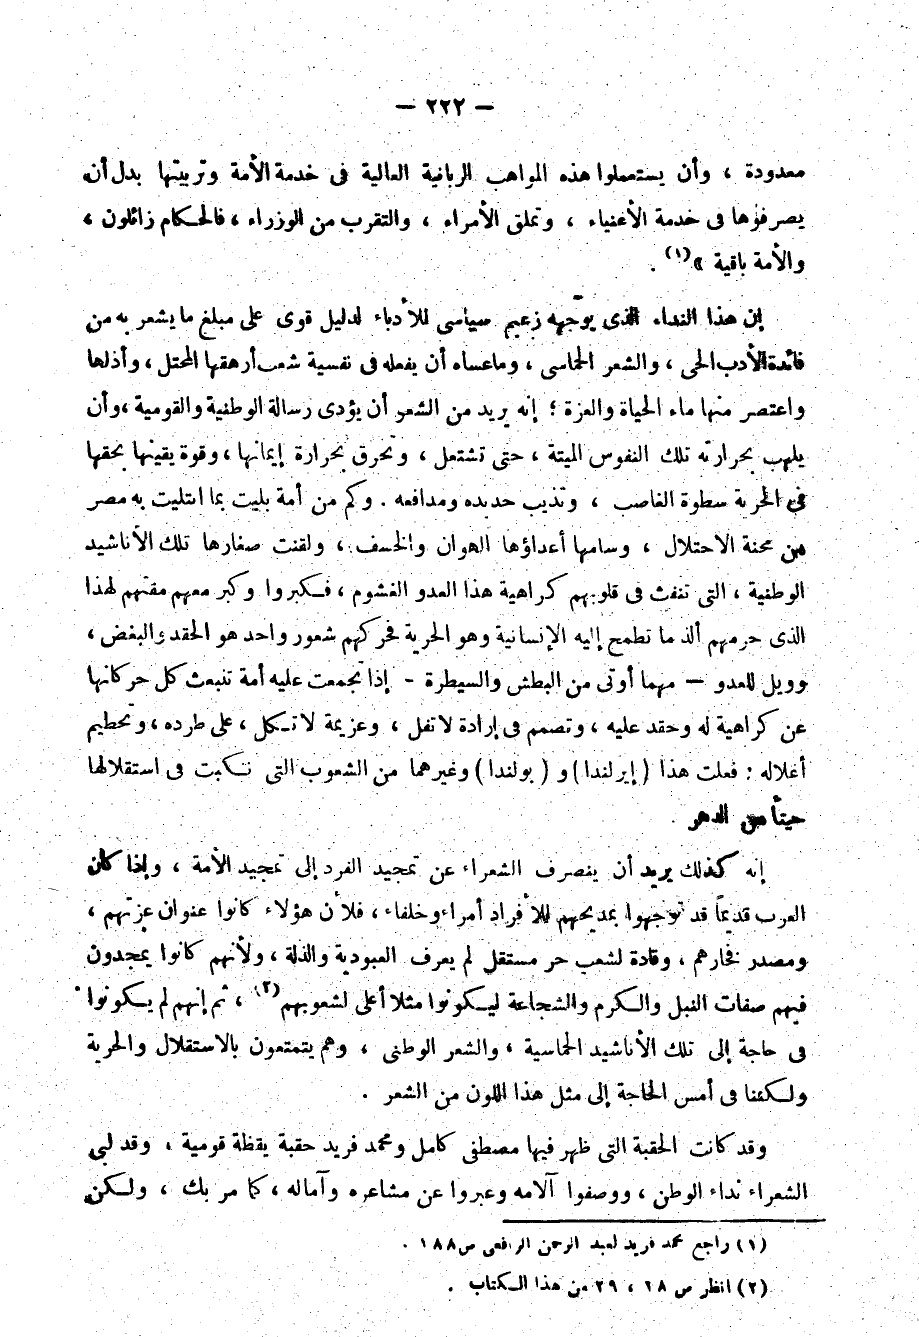 — ٢٢٢ —
معدودة ، وأن يستعملوا هذه المواهب الربانية العالية فى خدمة الأمة وتربيتها بدل أن
يصرفوها فى خدمة الأغنياء ، وتملق الأمراء ، والتقرب من الوزراء ، فالحكام زائلون ،
والأمة باقية »(١) .
إن هذا النداء الذى يوجّهه زعيم سياسى للأدباء لدليل قوى على مبلغ ما يشعر به من
فائدة الأدب الحى ، والشعر الحماسى ، وما عساه أن يفعله فى نفسية شعب أرهقها المحتل ، وأذلها
واعتصر منها ماء الحياة والعزة ؛ إنه يريد من الشعر أن يؤدى رسالة الوطنية والقومية ، وأن
يلهب بحرارته تلك النفوس الميتة ، حتى تشتعل ، وتحرق بحرارة إيمانها ، وقوة يقينها بحقها
فى الحرية سطوة الغاصب ، وتذيب حديده ومدافعه . وكم من أمة بليت بما ابتليت به مصر
من محنة الاحتلال ، وسامها أعداؤها الهوان والخسف ، ولقنت صغارها تلك الأناشيد
الوطنية ، التى تنفث فى قلوبهم كراهية هذا العدو الغشوم ، فكبروا وكبر معهم مقتهم لهذا
الذى حرمهم ألذ ما تطمح إليه الإنسانية وهو الحرية فحركهم شعور واحد هو الحقد والبغض ،
وويل للعدو — مهما أوتى من البطش والسيطرة - إذا تجمعت عليه أمة تنبعث كل حركاتها
عن كراهية له وحقد عليه ، وتصمم فى إرادة لا تفل ، وعزيمة لا تكل ، على طرده ، وتحطيم
أغلاله : فعلت هذا ( إيرلندا ) و ( بولندا ) وغيرهما من الشعوب التى نكبت فى استقلالها
حيناً من الدهر .
إنه كذلك يريد أن ينصرف الشعراء عن تمجيد الفرد إلى تمجيد الأمة ، وإذا كان
العرب قديماً قد توجهوا بمديحهم للأفراد أمراء وخلفاء ، فلأن هؤلاء كانوا عنوان عزتهم ،
ومصدر فخارهم ، وقادة لشعب حر مستقل لم يعرف العبودية والذلة ، ولأنهم كانوا يمجدون
فيهم صفات النبل والكرم والشجاعة ليكونوا مثلا أعلى لشعوبهم(٢) ، ثم إنهم لم يكونوا
فى حاجة إلى تلك الأناشيد الحماسية ، والشعر الوطنى ، وهم يتمتعون بالاستقلال والحرية
ولكننا فى أمس الحاجة إلى مثل هذا اللون من الشعر .
وقد كانت الحقبة التى ظهر فيها مصطفى كامل ومحمد فريد حقبة يقظة قومية ، وقد لبى
الشعراء نداء الوطن ، ووصفوا آلامه وعبروا عن مشاعره وآماله ، كما مر بك ، ولكن
(١) راجع محمد فريد لعبد الرحمن الرافعى ص ١٨٨ .
(٢) انظر ص ٢٨ ، ٢٩ من هذا الكتاب .